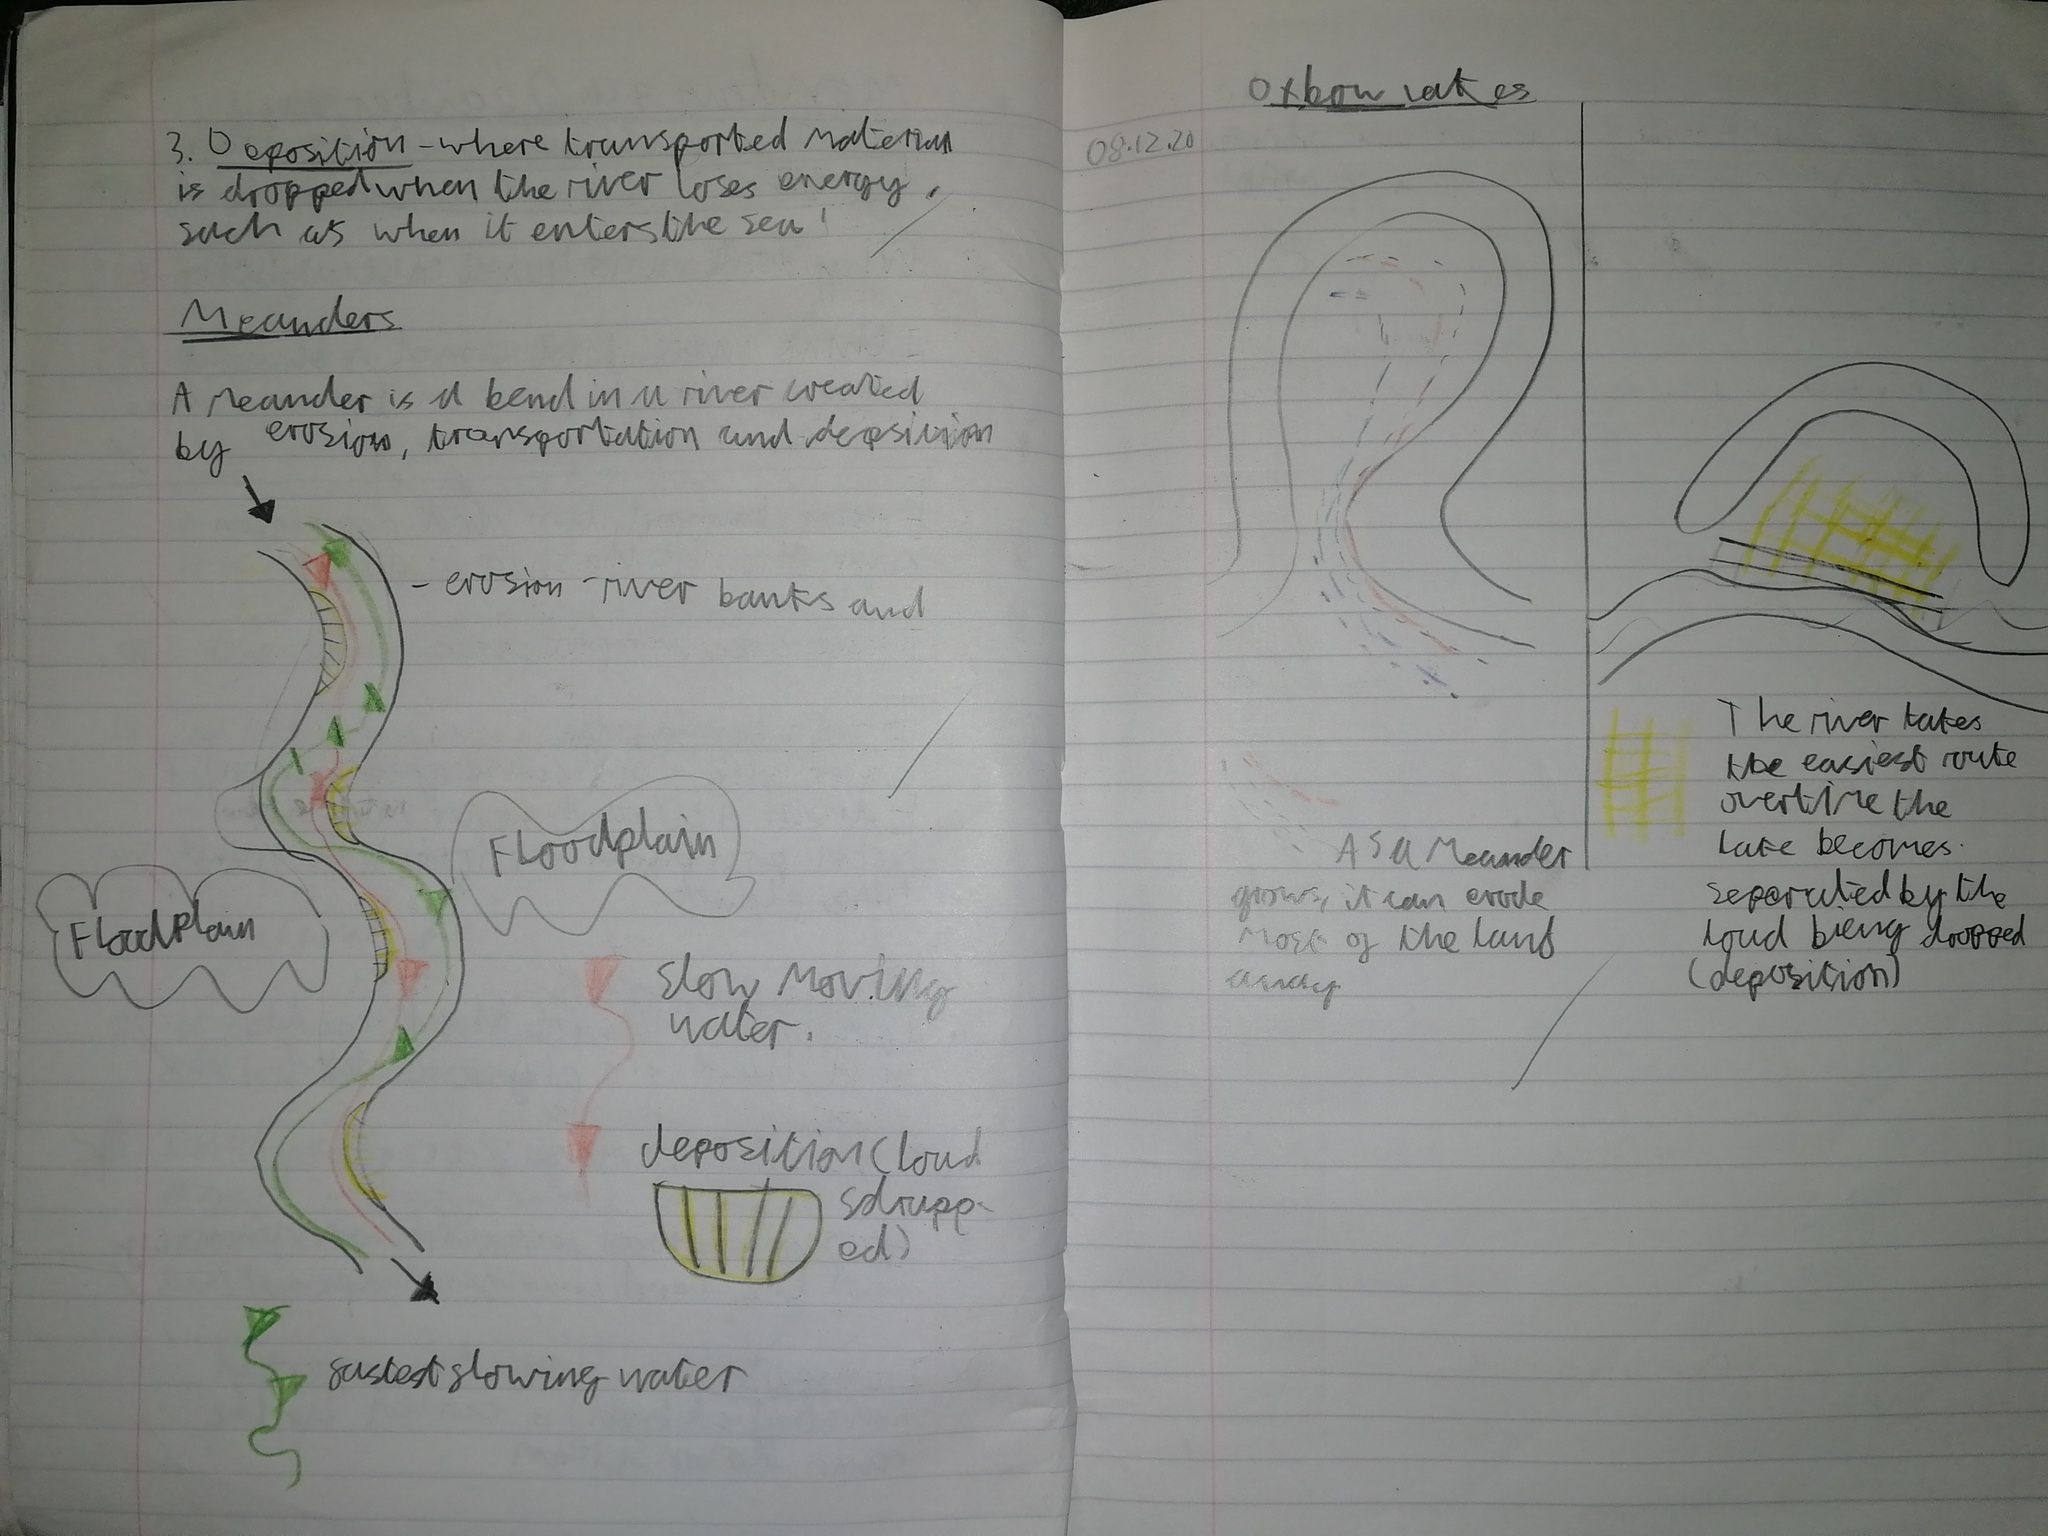 3. Deposition - where transported material
is dropped when the river loses energy,
such as when it enters the sea!
Meanders
A meander is a bend in a river created
by erosion, transportation and deposition
- erosion - river banks and
Floodplain
Floodplain
slow moving
water.
deposition (load
s drupp-
ed)
fastest flowing water
Oxbow lakes
08.12.20
As a meander
grows, it can erode
most of the land
away
The river takes
the easiest route
overtime the
lake becomes.
seperated by the
load bieng dropped
(deposition)